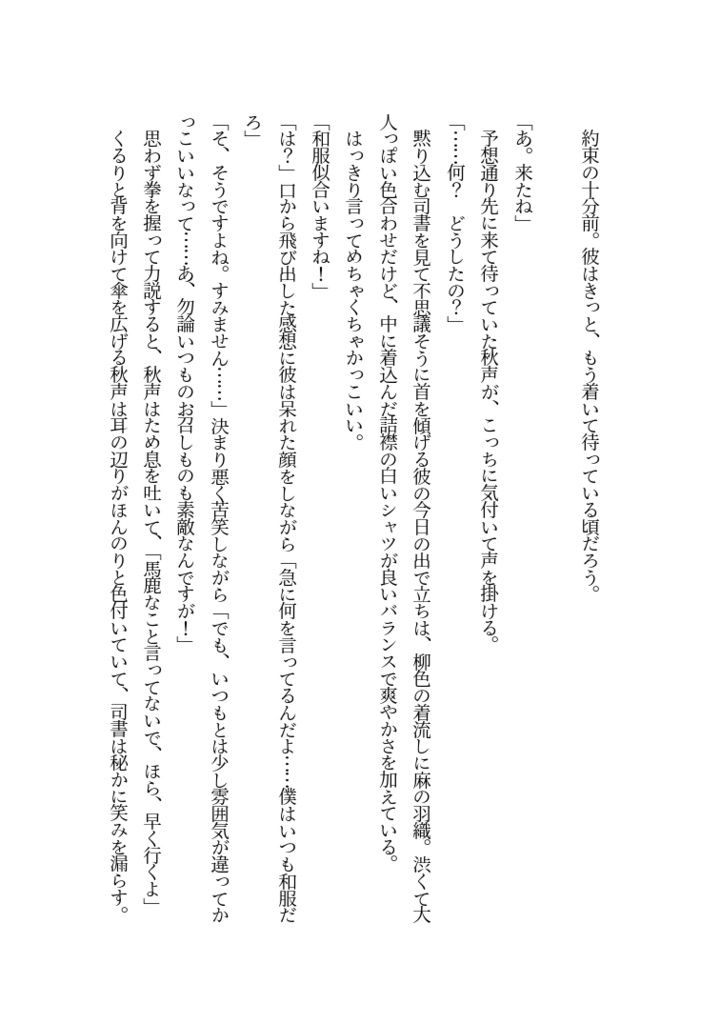 約束の十分前。彼はきっと、もう着いて待っている頃だろう。
「あ。来たね」
予想通り先に来て待っていた秋声が、こっちに気付いて声を掛ける。
「……何？　どうしたの？」
黙り込む司書を見て不思議そうに首を傾げる彼の今日の出で立ちは、柳色の着流しに麻の羽織。渋くて大
人っぽい色合わせだけど、中に着込んだ詰襟の白いシャツが良いバランスで爽やかさを加えている。
はっきり言ってめちゃくちゃかっこいい。
「和服似合いますね！」
「は？」口から飛び出した感想に彼は呆れた顔をしながら「急に何を言ってるんだよ……僕はいつも和服だ
ろ」
「そ、そうですよね。すみません……」決まり悪く苦笑しながら「でも、いつもとは少し雰囲気が違ってか
っこいいなって……あ、勿論いつものお召しものも素敵なんですが！」
思わず拳を握って力説すると、秋声はため息を吐いて、「馬鹿なこと言ってないで、ほら、早く行くよ」
くるりと背を向けて傘を広げる秋声は耳の辺りがほんのりと色付いていて、司書は秘かに笑みを漏らす。